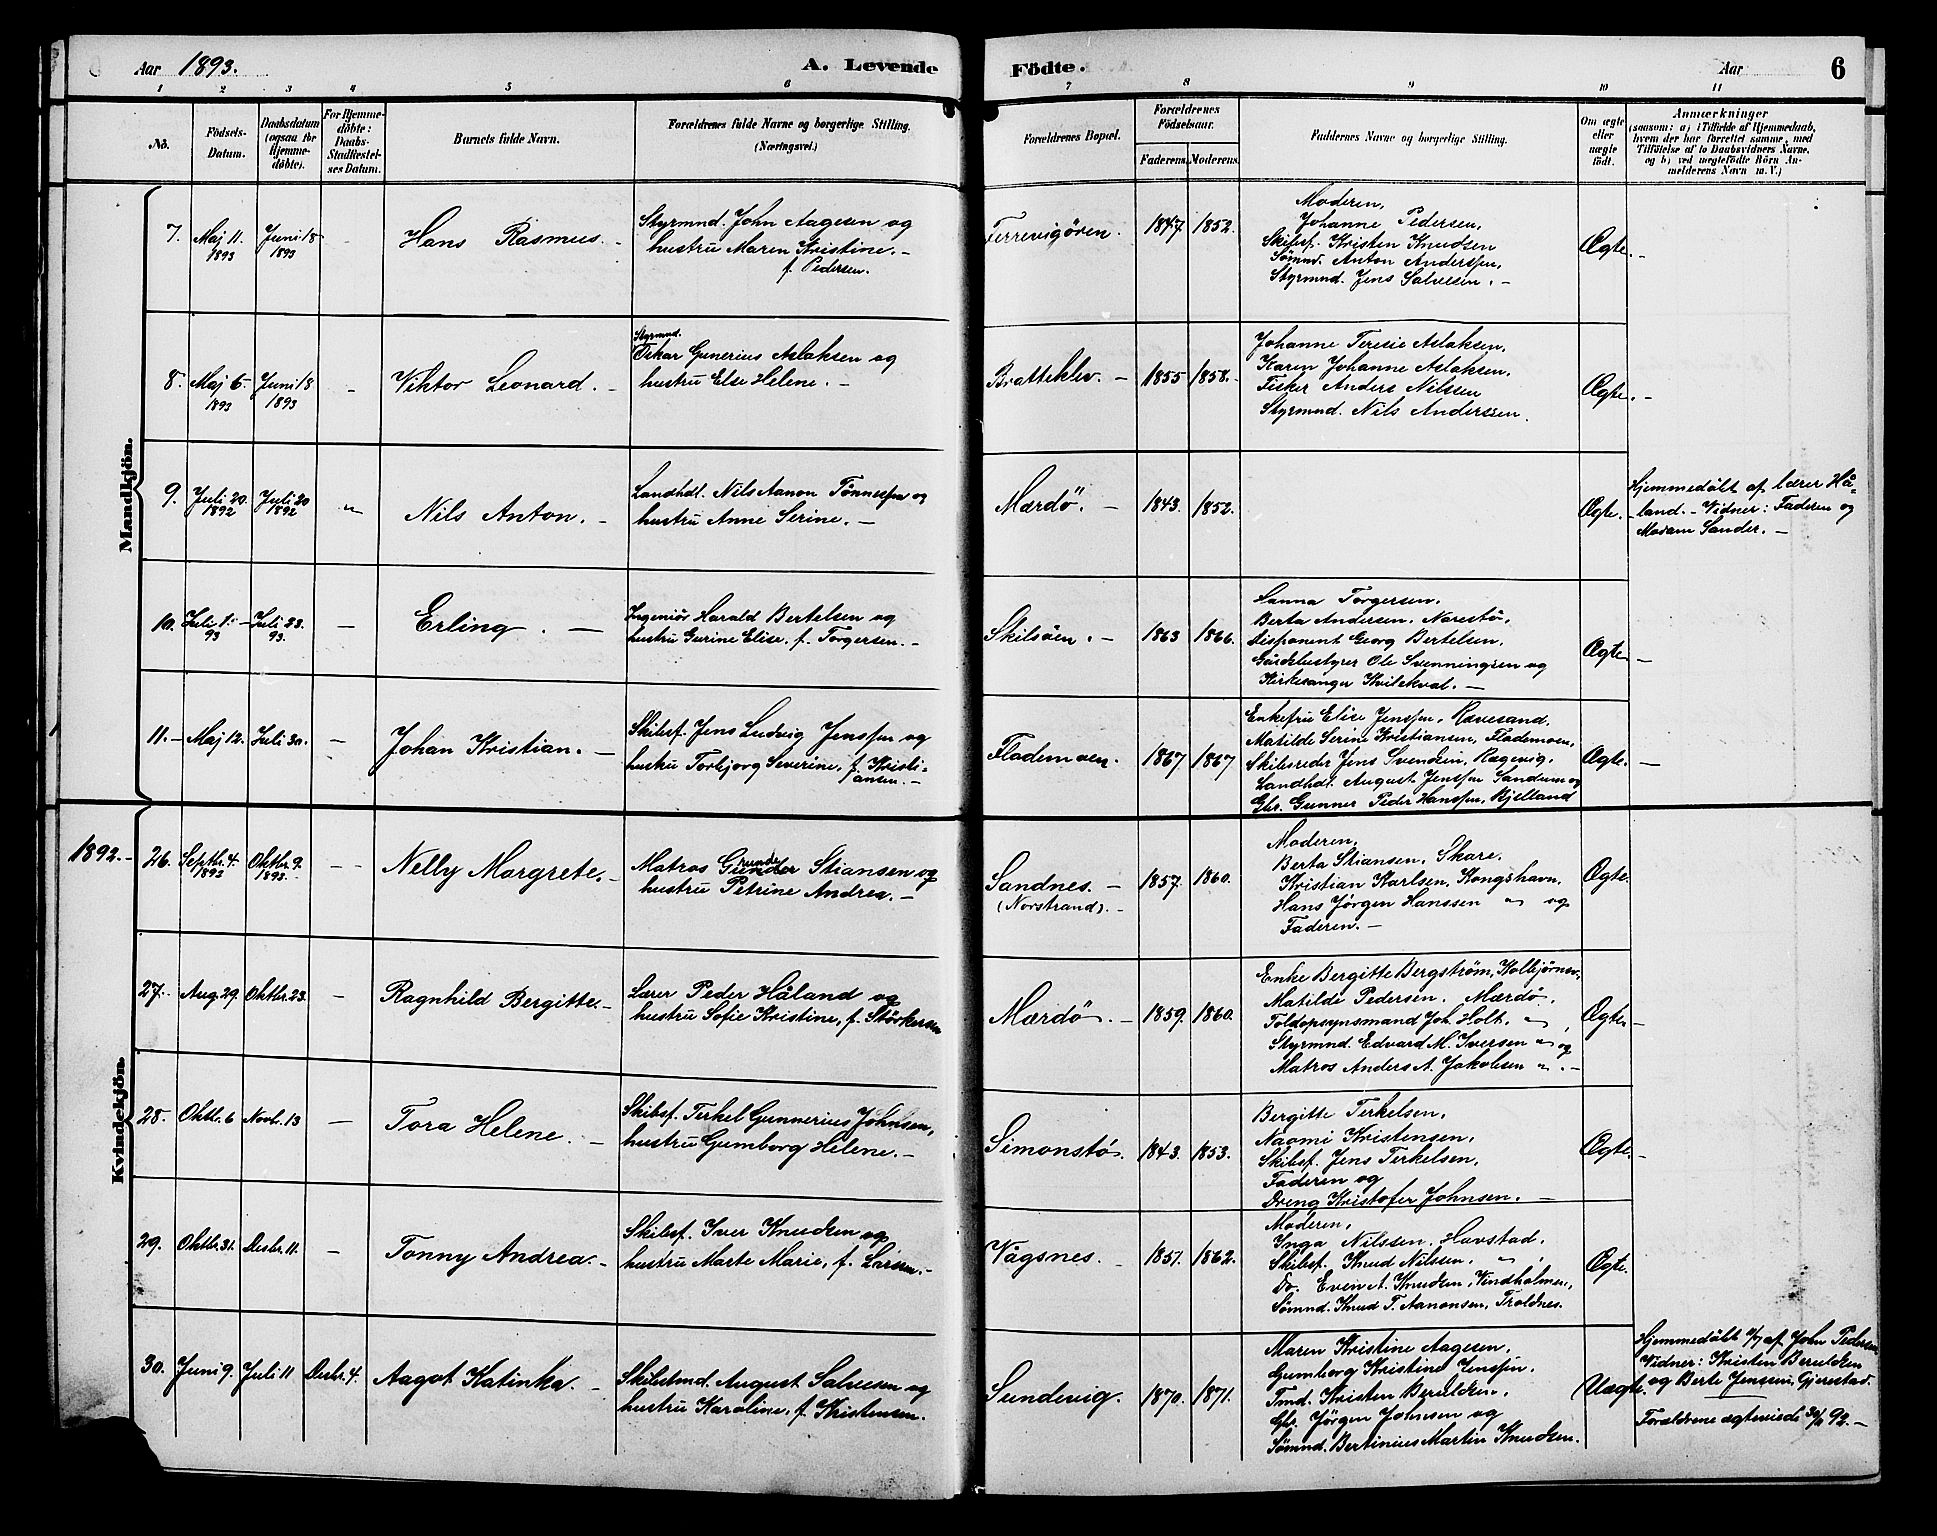 Aar 1893. A. Levende Födte. Aar 6
1 2 3 4 5 6 7 8 9 10 11
No. Födsels-Datum. Daabsdatum (ogsaa for Hjemmedöbte). For Hjemmedöbte: Daabs-Stadfestelses Datum. Barnets fulde Navn. Forældrenes fulde Navne og borgerlige Stilling. (Næringsvei.) Forældrenes Bopæl. Forældrenes Födselsaar. Faderens. Moderens. Faddernes Navne og borgerlige Stilling. Om ægte eller uægte födt. Anmærkninger
(saasom: a) i Tilfælde af Hjemmedaab, hvem der har forrettet samme, med Tilföielse af to Daabsvidners Navne, og b) ved uægtefödte Börn Anmelderens Navn m. V.)
Mandkjön.
7. Maj 11. 1893 Juni 18 1893 Hans Rasmus. –
Styrmnd. John Aagesen og
hustru Maren Kristine. –
f. Pedersen.
Terrevigøren. 1847. 1852.
Moderen,
Johanne Pedersen,
Skibsf. Kristen Knudsen
Sømnd. Anton Anderssen,
Styrmnd. Jens Salvesen. –
Ægte. –
8. Maj 6 – 1893 Juni 18 1893 – Viktor Leonard. –
Styrmnd.
Oskar Gunerius Aslaksen og
hustru Else Helene. –
Bratteklev. – 1855 1858. –
Johanne Teresie Aslaksen,
Karen Johanne Aslaksen,
Fisker Anders Nilssen
Styrmnd. Nils Anderssen.
Ægte. –
9. Juli 20. 1892 Juli 20 1892 " Nils Anton. –
Landhdl. Nils Aanon Tønnessen og
hustru Anne Serine. –
Mærdö. – 1843. 1852.
Ægte. –
Hjemmedøbt af lærer Hå-
land. – Vidner: Faderen og
Madam Sander. –
10. Juli 1. – 93 Juli 23. 93. – Erling. –
Ingeniör Harald Bertelsen og
hustru Gurine Elise, f. Torgersen. –
Skilsøen. – 1863 1866.
Hanna Torgersen,
Berta Andersen, Narestø,
Disponent Georg Bertelsen,
Gårdbestyrer Ole Svenningsen og
Kirkesanger Kvilekval. –
Ægte –
11. – Maj 12. Juli 30. – Johan Kristian. –
Skibsf. Jens Ludvig Jenssen og
hustru Torbjorg Severine, f. Kristi-
ansen. –
Flademoen. 1867 1867
Enkefru Elise Jenssen, Rævesand,
Matilde Serine Kristiansen, Flademoen,
Skibsreder Jens Svendsen, Rægevig,
Landhdl. August Jenssen Sandum og
Gbr. Gunner Peder Hanssen, Bjelland
Ægte. –
1892. –
Kvindekjön.
26. Septbr. 4. 1892 Oktbr. 9. 1893. – – Nelly Margrete. –
Matros Gunder Stiansen og
hustru Petrine Andrea. –
Sandnes. – (Norstrand). – 1857. 1860.
Moderen,
Berta Stiansen, Skare,
Kristian Karlsen, Kongshavn,
Hans Jørgen Hanssen " og
Faderen. –
Ægte.
27. Aug. 29. Oktbr. 23. – Ragnhild Bergitte. –
Lærer Peder Håland og
hustru Sofie Kristine, f. Störkersen
Mærdö. – 1859. 1860.
Enke Bergitte Bergström, Kolbjørnsv.
Matilde Pedersen. Mærdö,
Toldopsynsmand Joh. Holt. " ,
Styrmnd. Edvard M. Iversen " og
Matros Anders A. Jakobsen " . –
Ægte –
28. Oktbr. 6 Novb. 13 – Tora Helene. –
Skibsf. Terkel Gunnerius Johnsen,
hustru Gumborg Helene. –
Simonstø. 1843. 1853.
Bergitte Terkelsen,
Naomi Kristensen,
Skibsf. Jens Terkelsen,
Faderen og
Dreng Kristofer Johnsen. –
Ægte. –
29. Oktbr. 31. Desbr. 11. – Tonny Andrea. –
Skibsf. Iver Knudsen og
hustru Marte Marie, f. Larsen. –
Vågsnes. 1851. 1862.
Moderen,
Inga Nilssen, Havstad,
Skibsf. Knud Nilsen, " ,
Do. Even A. Knudsen, Vindholmen,
Sømnd. Knud T. Aanonsen, Troldnes.
Ægte.
30. Juni 9. Juli 11 Desbr. 4. Aagot Katinka. –
Skibstmd. August Salvesen og
hustru Karoline, f. Kristensen.
Sundevig. 1870. 1871.
Maren Kristine Aagesen,
Gumborg Kristine Jenssen,
Tmd. Kristen Beruldsen,
Gbr. Jörgen Johnsen og
Sømnd. Bertinius Martin Knudsen.
Uægte.
Hjemmedøbt 11/7 af John Pedersen
Vidner: Kristen Beruldsen
og Berte Jenssen, Gjerestad.
Forældrene ægteviede 92. –